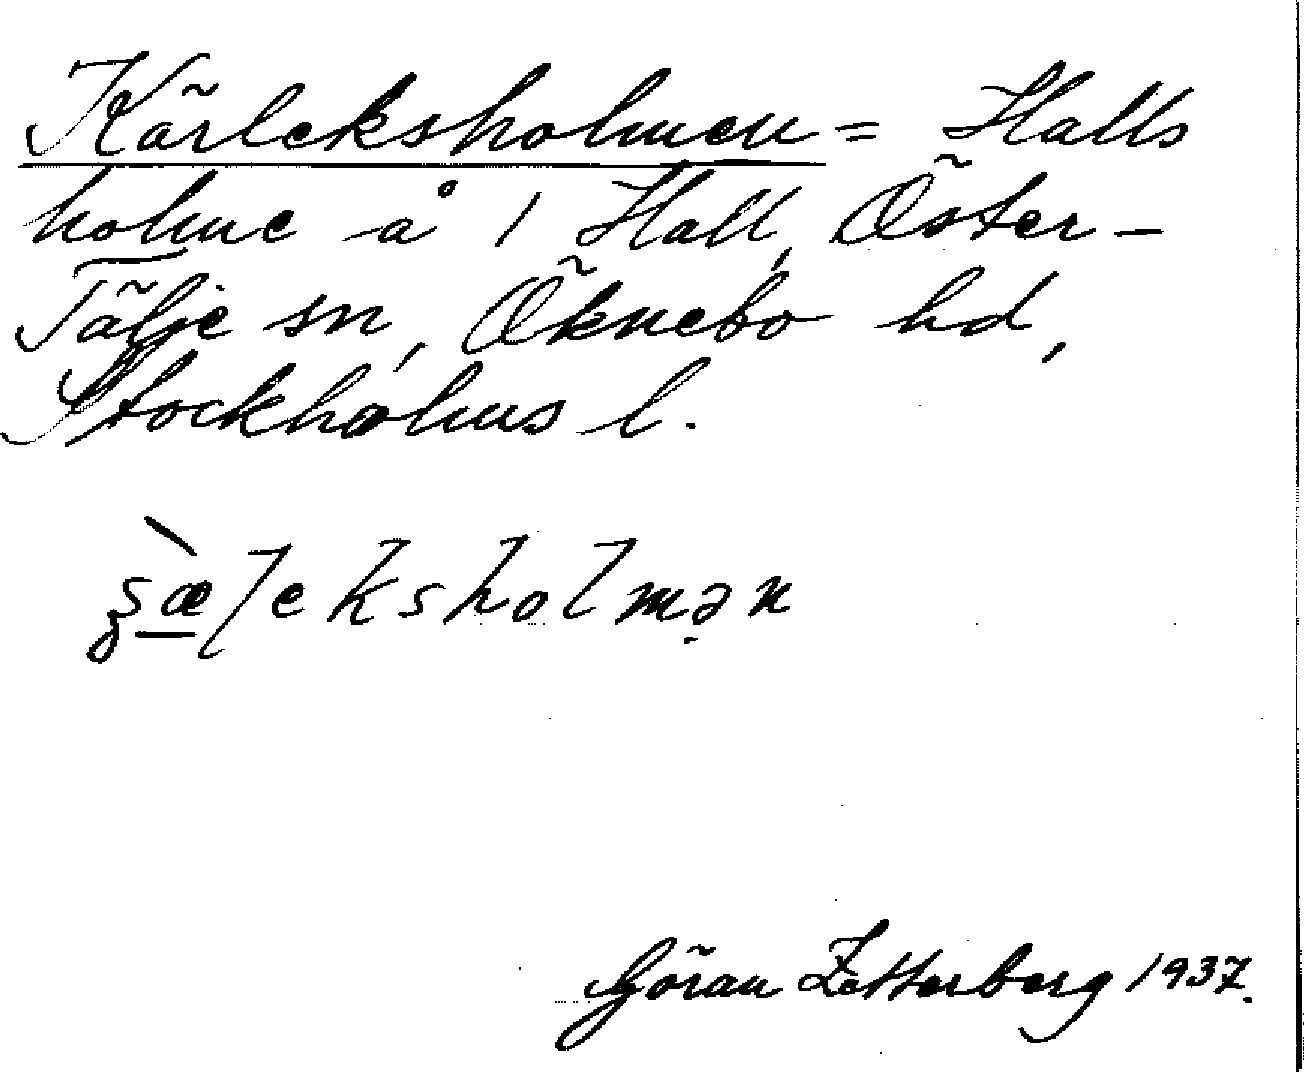 Kärleksholmen = Halls
holme å 1 Hall, Öster-
Tälje sn, Öknebo hd,
Stockholms l.
Göran Zetterberg 1937.